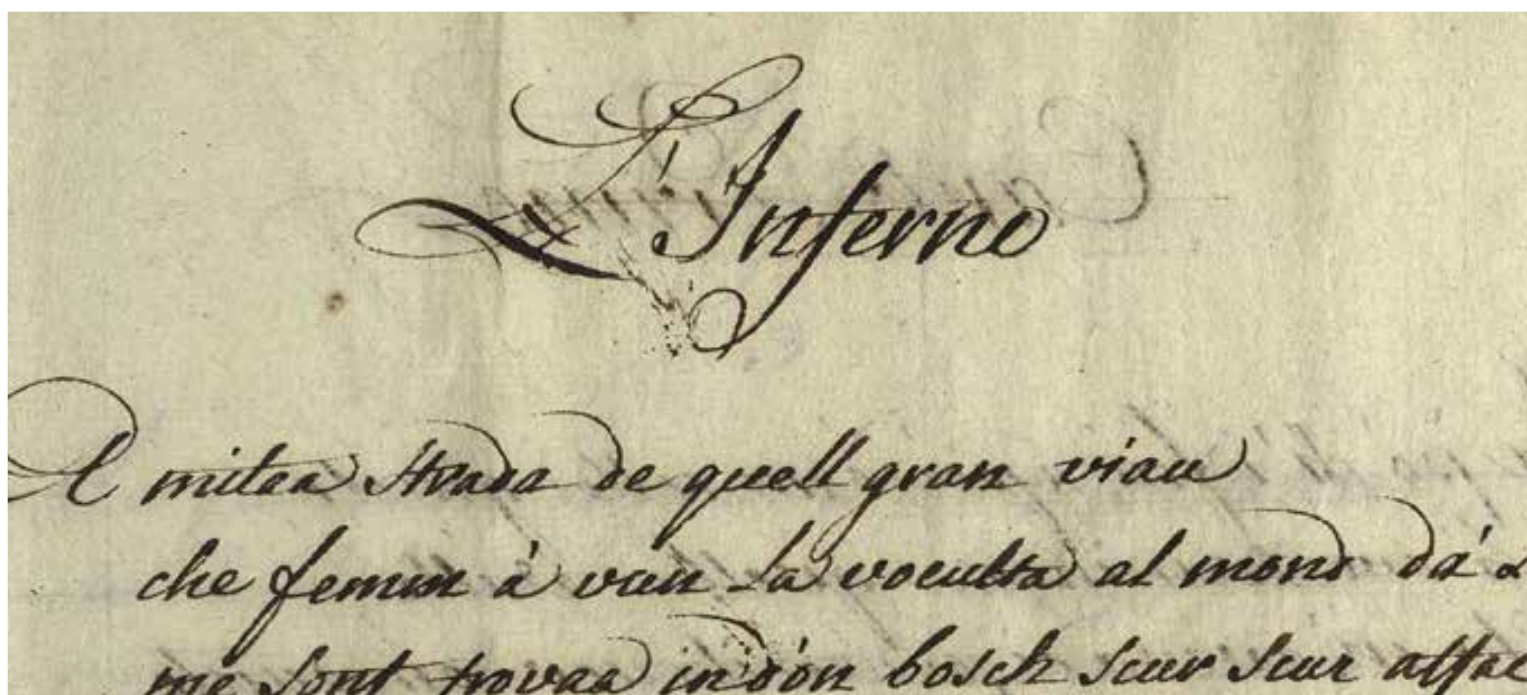 L'Inferno
A mitaa strada de quell gran viacc
che femm à vun la voeulta al mond dà
me sont trovaa in d'òn bosch scur scur affac